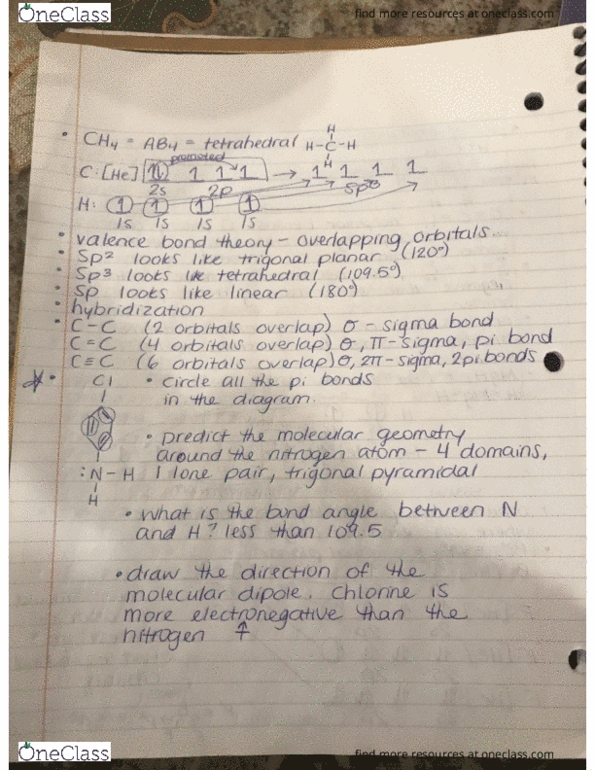 OneClass
find more resources at oneclass.com
• CH4 = AB4 = tetrahedral H-C-H
H
H
promoted
C:[He] 1l 1 1 1 → 1 1 1 1
2s 2p sp3
H: 1 1 1 1
1s 1s 1s 1s
• valence bond theory - overlapping orbitals
• Sp2 looks like trigonal planar (120°)
• Sp3 looks like tetrahedral (109.5°)
• Sp looks like linear (180°)
• hybridization
• C-C (2 orbitals overlap) σ - sigma bond
C=C (4 orbitals overlap) σ, π - sigma, pi bond
C≡C (6 orbitals overlap) σ, 2π - sigma, 2pi bonds
Cl • Circle all the pi bonds
in the diagram.
• predict the molecular geometry
around the nitrogen atom - 4 domains,
:N-H 1 lone pair, trigonal pyramidal
H
• what is the bond angle between N
and H? less than 109.5
• draw the direction of the
molecular dipole. Chlorine is
more electronegative than the
nitrogen
OneClass
find more resources at oneclass.com